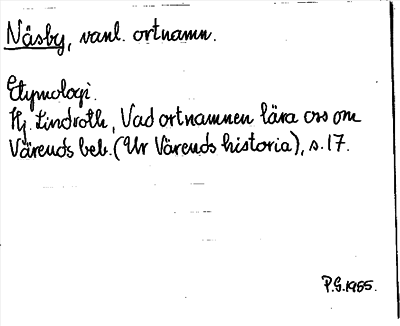 Näsby, vanl. ortnamn.
Etymologi.
Hj. Lindroth, Vad ortnamnen lära oss om
Värends beb. (Ur Värends historia), s. 17.
P.G. 1985.